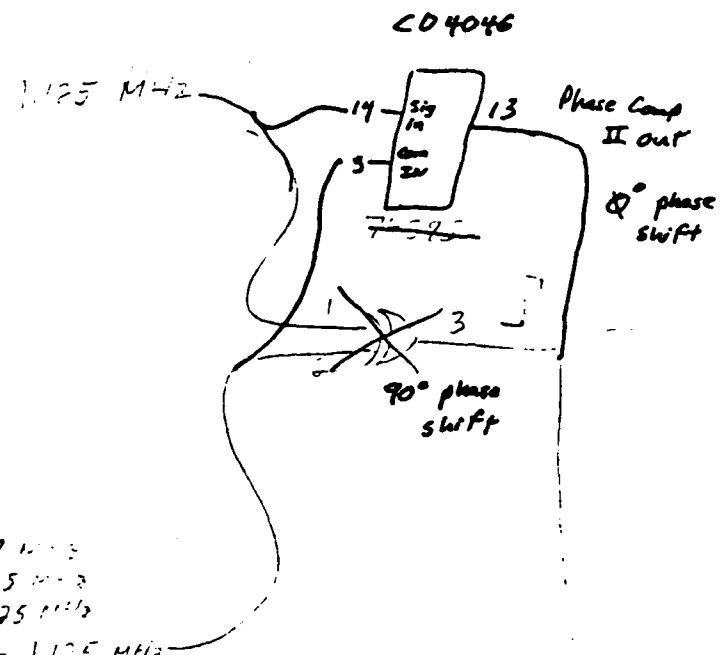 CD4046
1.125 MHz
14
Sig in
13
Phase Comp
II out
3
Com IN
0° phase
shift
1
3
90° phase
shift
5 MHz
25 MHz
1.125 MHz